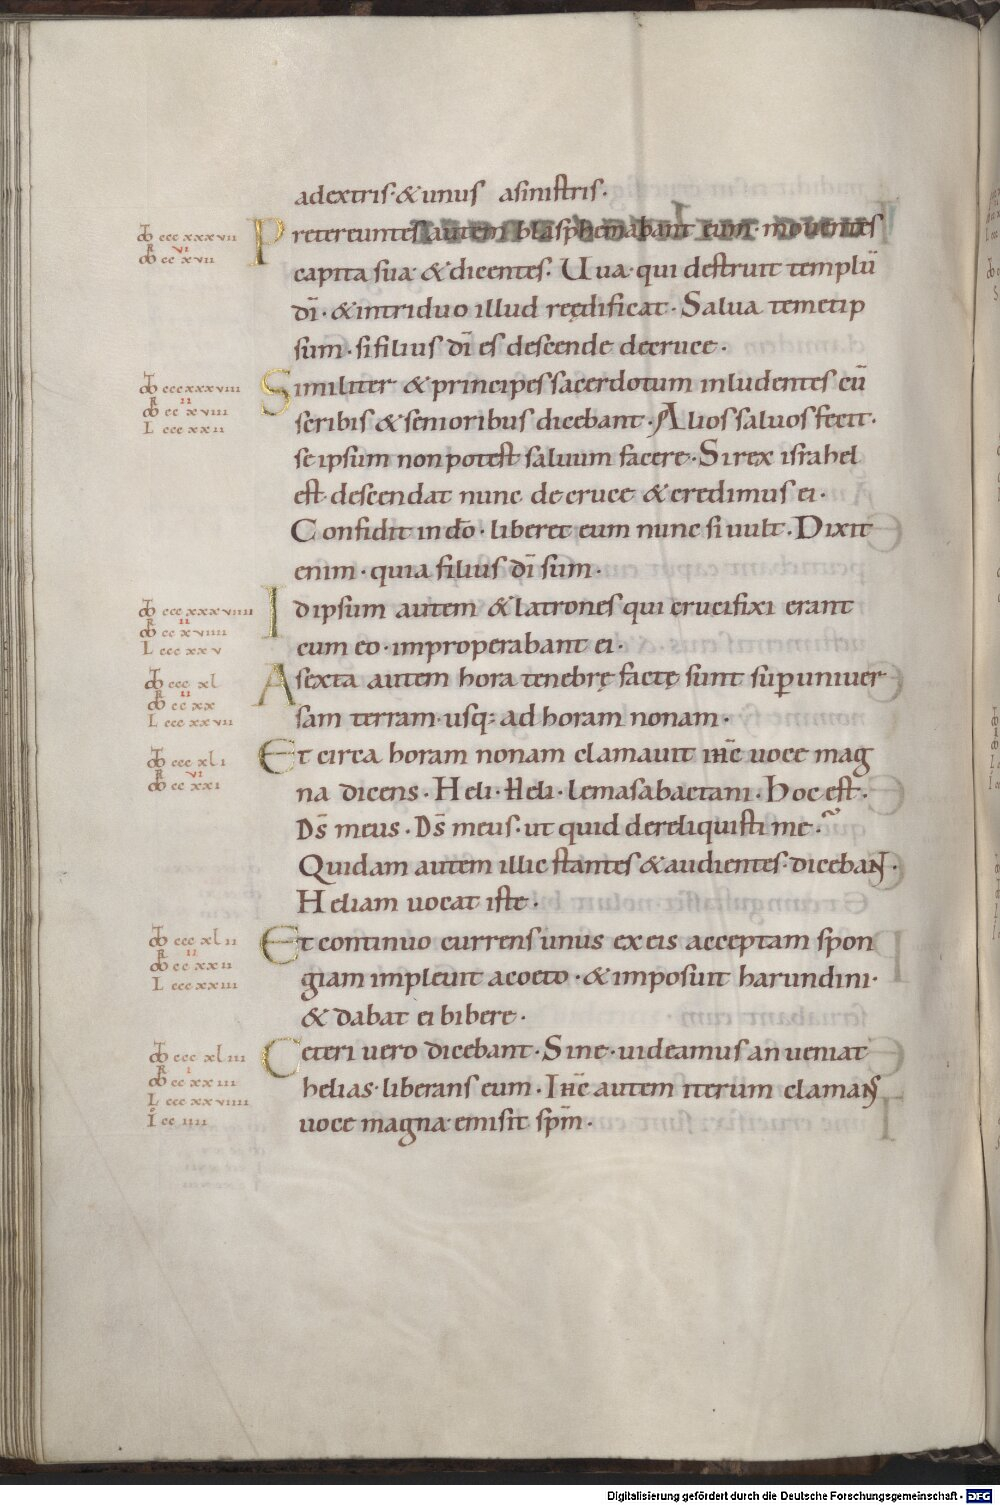 adextris·&unus asinistris·
Pretereuntes autem blasphemabant eum· mouentes
capita sua· &dicentes· Uua· qui destruit templū
dī· &intriduo illud reędificat· Salua temetip
sum· sifilius dī es descende decruce·
Similiter &principes sacerdotum inludentes eū
scribis &senioribus dicebant· Alios saluos fecit·
se ipsum nonpotest saluum facere· Si rex israhel
est descendat nunc decruce &credimus ei·
Confidit indō· liberet eum nunc siuult· Dixit
enim· quia filius dī sum·
Idipsum autem &latrones qui crucifixi erant
cum eo· improperabant ei·
Asexta autem hora tenebrę factę sunt sup uniuer
sam terram· usq; ad horam nonam·
Et circa horam nonam clamauit ihc̄ uoce mag
na dicens· Heli· Heli· lemasabactani· Hoc est·
Ds̄ meus· Ds̄ meus· ut quid dereliquisti me·
Quidam autem illic stantes &audientes· dicebant·
Heliam uocat iste·
Et continuo currens unus exeis acceptam spon
giam impleuit acoeto· &imposuit harundini·
& dabat ei bibere·
Ceteri uero dicebant· Sine· uideamus an ueniat
helias· liberans eum· Ihc̄ autem iterum clamans
uoce magna· emisit spm̄·
ccc xxxvii
vi
cc xvii
ccc xxxviii
ii
cc xviii
L ccc xxii
ccc xxxviiii
ii
cc xviiii
L ccc xxv
ccc xl
ii
cc xx
L ccc xxvii
ccc xli
vi
cc xxi
ccc xlii
ii
cc xxii
L ccc xxiii
ccc xliii
i
cc xxiii
L ccc xxviiii
I cc iiii
Digitalisierung gefördert durch die Deutsche Forschungsgemeinschaft - DFG